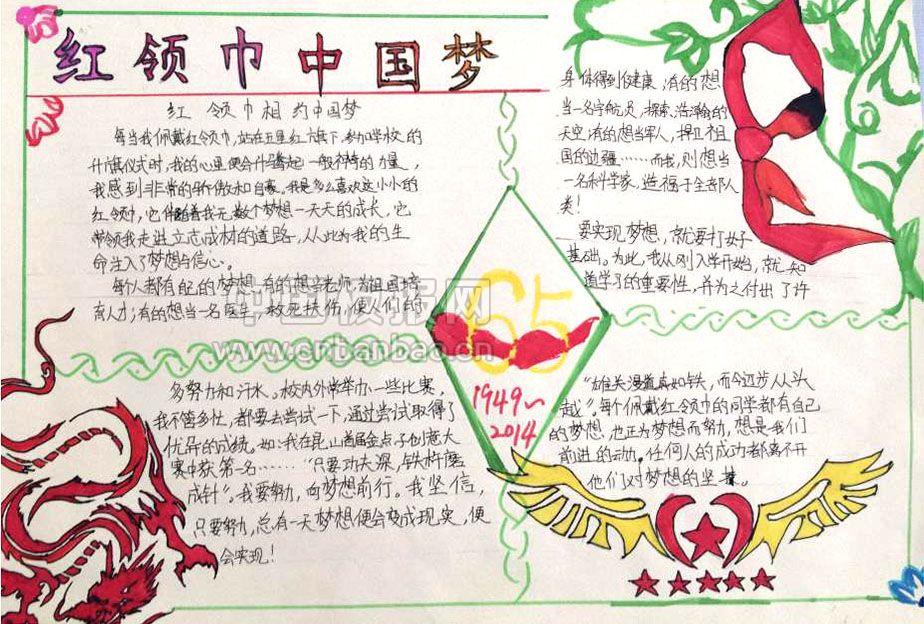 红领巾中国梦
红领巾相约中国梦
每当我佩戴红领巾,站在五星红旗下,参加学校的
升旗仪式时,我的心里便会升腾起一股神奇的力量,
我感到非常的骄傲和自豪。我是多么喜欢这小小的
红领巾,它伴随着我无数个梦想一天天的成长,它
带领我走进立志成材的道路,从此为我的生
命注入了梦想与信心。
每人都有自己的梦想,有的想当老师,为祖国培
育人才;有的想当一名医生,救死扶伤,使人们的
身体得到健康,有的想
当一名宇航员,探索浩瀚的
天空;有的想当军人,捍卫祖
国的边疆……而我,则想当
一名科学家,造福于全部人
类!
要实现梦想,就要打好
基础。为此,我从刚入学开始,就知
道学习的重要性,并为之付出了许
多努力和汗水。校内外常举办一些比赛,
我不管多忙,都要去尝试一下,通过尝试取得了
优异的成绩。如:我在昆山首届金点子创意大
赛中获第一名……“只要功夫深,铁杵磨
成针”。我要努力,向梦想前行。我坚信,
只要努力,总有一天梦想便会变成现实,便
会实现!
“雄关漫道真如铁,而今迈步从头
越”。每个佩戴红领巾的同学都有自己
的梦想,也正为梦想而努力,想是我们
前进的动力。任何人的成功都离不开
他们对梦想的坚
65
1949~
2014
中国板报网
www.cnbanbao.cn